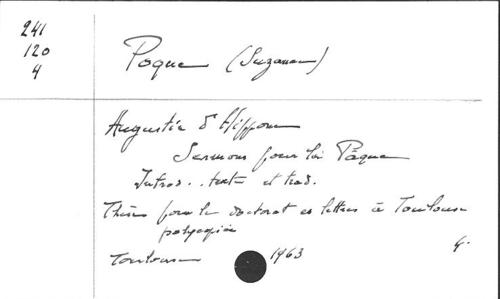 241
120
4
Poque (Suzanne)
Augustin d'Hippone
Sermons pour la Pâque
Introd.. texte et trad.
Thèse pour le doctorat es lettres à Toulouse
polycopiée
Toulouse 1963
4°